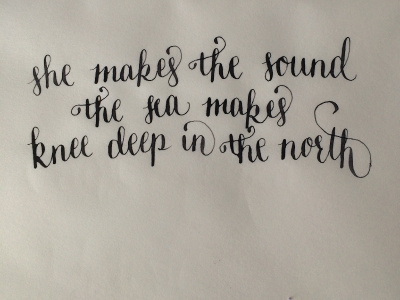 she makes the sound
the sea makes
knee deep in the north